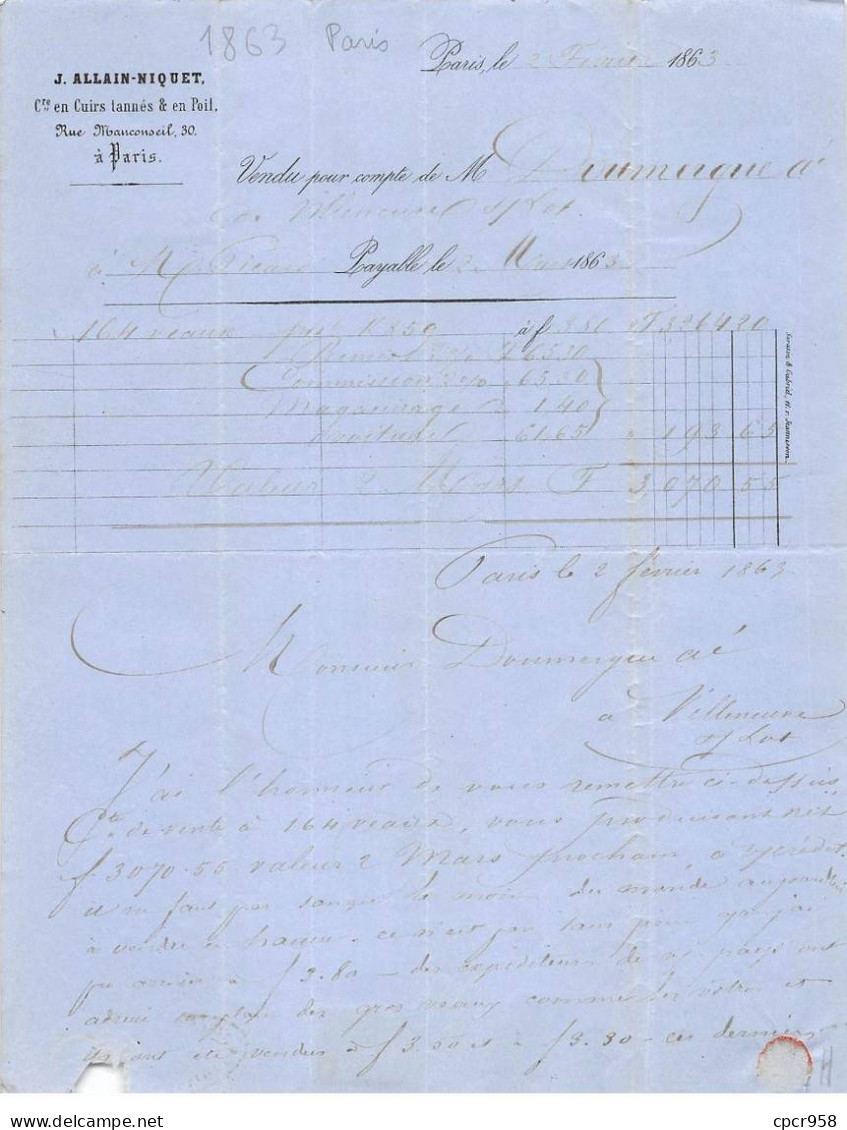 1863 Paris
Paris, le 2 Février 1863
J. ALLAIN-NIQUET,
Cre en Cuirs tannés & en Poil,
Rue Mauconseil, 30.
à Paris.
Vendu pour compte de M Doumergue
s/ Lot
à M Picard Payable le 2 Mars 1863
164 veaux K 859 à f. 380 F 3264 20
65.30
Commission 2% 65.30
Magasinage 1.40
Voiture 61.65 193 65
Valeur 2 Mars F 3,070 55
Paris le 2 février 1863
Monsieur Doumergue
a Villeneuve
s/ Lot
J'ai l'honneur de vous remettre ci-dessus
Cte de vente à 164 veaux, vous produisant net
f. 3070.55 valeur 2 Mars prochain, à v/crédit.
il ne faut pas songer le moins du monde aujourd'hui
à vendre en hausse. ce n'est pas sans peine que j'ai
pu arriver à f 3.80 - des expéditeurs de vos pays ont
des gros veaux comme les vôtres et
ils ont été vendus à f 3.60 et à f 3.30 - ces derniers
cpcr958